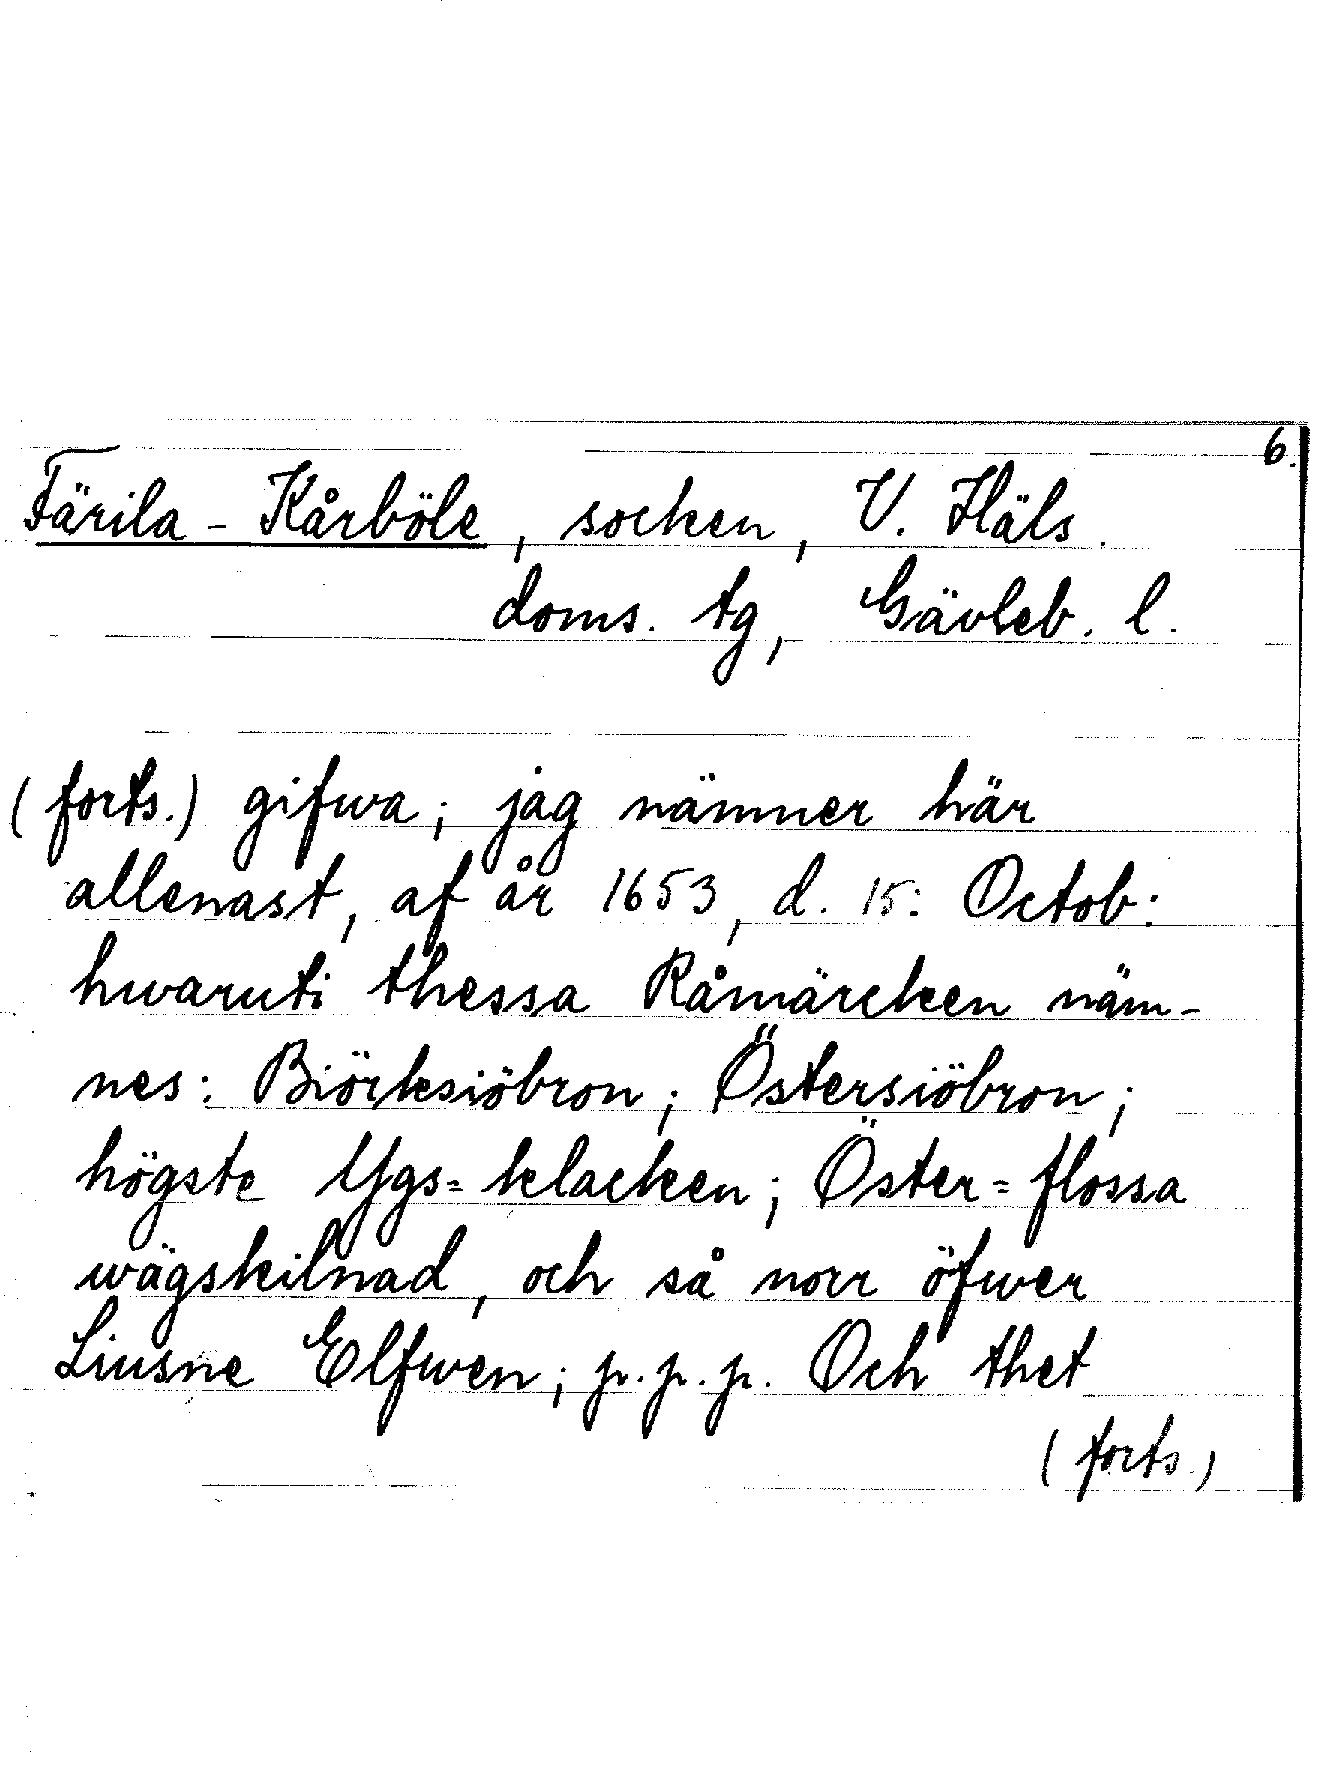 6.
Färila - Kårböle, socken, V. Häls.
doms. tg, Gävleb. l.
(forts.) gifwa; jag nämner här
allenast, af år 1653, d. 15: Octob:
hwaruti thessa Råmärcken näm-
nes: Biörksiöbron; Östersiöbron;
högste Ygs=klacken; Öster=flossa
wägskilnad, och så norr öfwer
Liusne Elfwen; p.p.p. Och thet
(forts.)